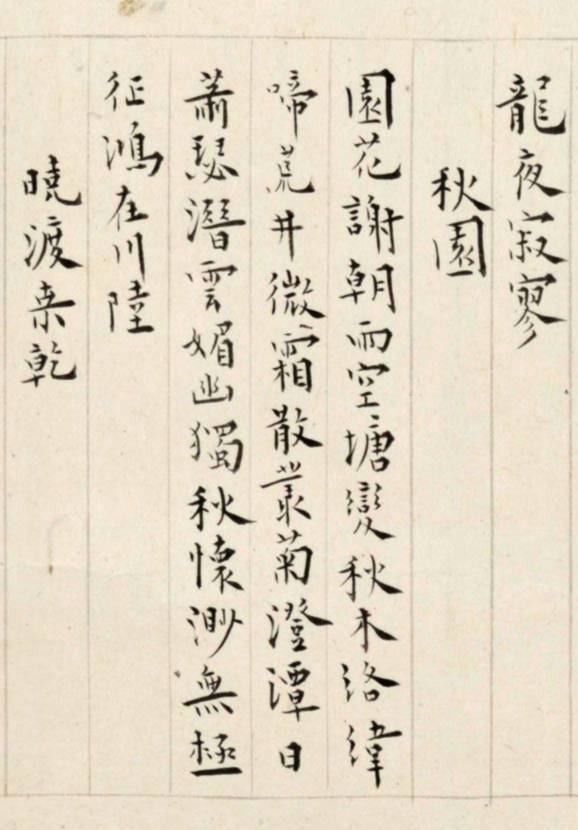 龍夜寂寥
秋園
園花謝朝雨空塘變秋木絡緯
啼荒井微霜散叢菊澄潭日
蕭瑟潛雲媚幽獨秋懷渺無極
征鴻在川陸
曉渡桑乾